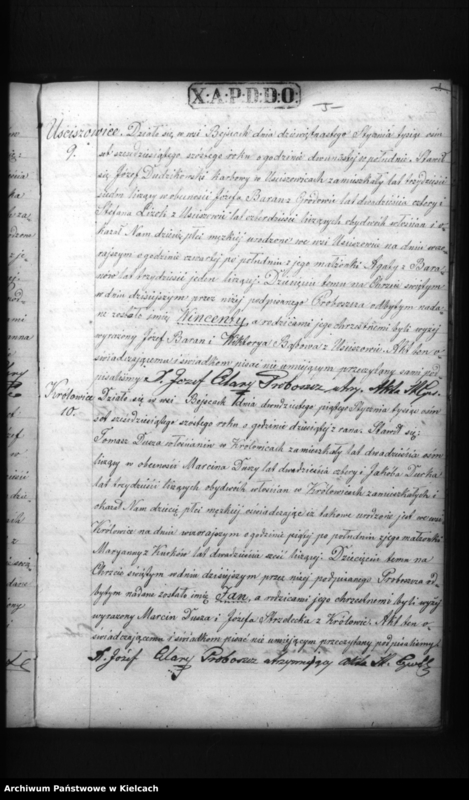 X·A·P·D·D·O·
Uściszowice. Działo się w wsi Bejscach dnia dziewiętnastego Stycznia tysiąc ośm
9. set sześdziesiątego szóstego roku o godzinie dwunastej w południe. Stawił
się Józef Dudzikoski karbowy w Uściszowicach zamieszkały lat trzydzieści
siedm liczący w obecności Józefa Barana z Grodowic lat dwadzieścia cztery i
Stefana lat czterdzieści liczących obydwóch włościan i o-
kazał Nam dziecię płci męzkiej urodzone we wsi Uściszowic na dniu wczo-
rajszym o godzinie czwartej po południu z jego małżonki Agaty z Bara-
nów lat trzydzieści jeden liczącej. Dziecięciu temu na Chrzcie świętym
w dniu dzisiejszym przez niżej podpisanego Proboszcza odbytym nada-
ne zostało imię Wincenty, a rodzicami jego chrzestnemi byli wyżej
wyrażony Józef Baran i Wiktorya z Uściszowic. Akt ten o-
świadczającemu i świadkom pisać nie umiejącym przeczytany sami pod-
pisaliśmy X. Józef Proboszcz utrz. Akta St. Cyw.
Królowice Działo się w wsi Bejscach dnia dwudziestego piątego Stycznia tysiąc ośm-
10. set sześdziesiątego szóstego roku o godzinie dziewiątej z rana. Stawił się
Tomasz Duza włościanin w Królowicach zamieszkały lat dwadzieścia ośm
liczący w obecności Marcina Duzy lat dwadzieścia cztery i Jakóba
lat trzydzieści liczących obydwóch włościan w Królowicach zamieszkałych i
okazał Nam dziecię płci męzkiej oświadczając iż takowe urodzone jest we wsi
Królowice na dniu wczorajszym o godzinie piątej po południu z jego małżonki
Maryanny z lat dwadzieścia sześć liczącej. Dziecięciu temu na
Chrzcie świętym w dniu dzisiejszym przez niżej podpisanego Proboszcza od-
bytym nadane zostało imię Jan, a rodzicami jego chrzestnemi byli wyżej
wyrażony Marcin Duza i Józefa z Królowic. Akt ten o-
świadczającemu i świadkom pisać nie umiejącym przeczytany podpisaliśmy
X. Józef Proboszcz utrzymujący Akta St. Cywil.
Archiwum Państwowe w Kielcach